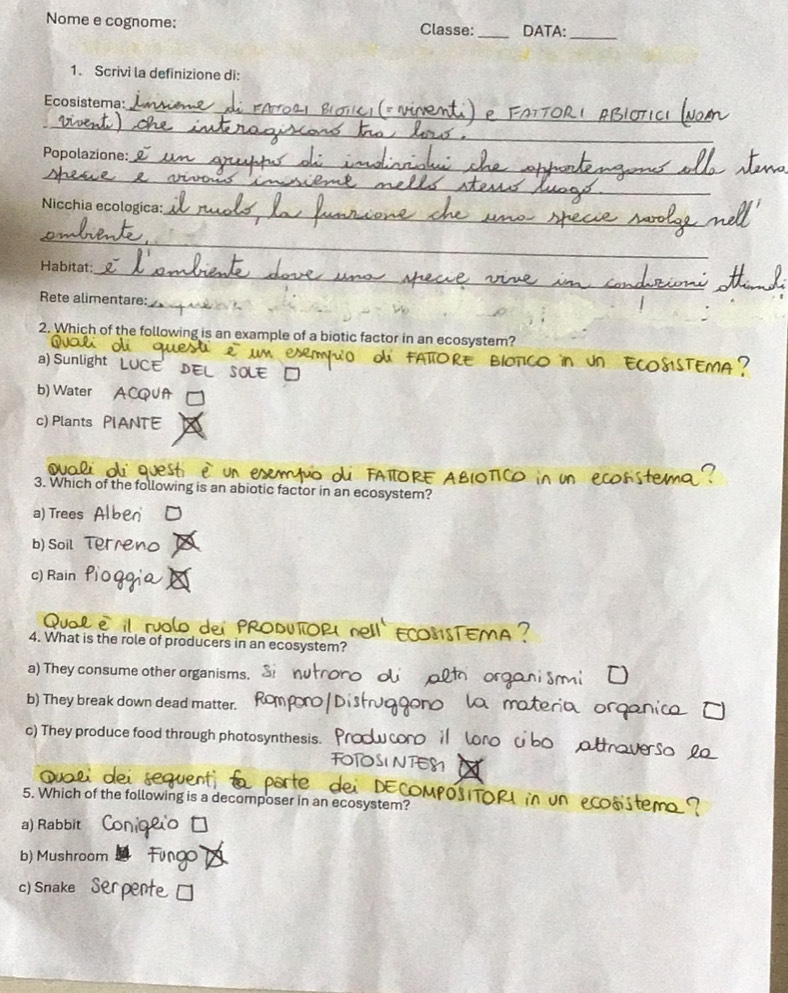 Nome e cognome:
Classe: ____ DATA: _____
1. Scrivi la definizione di:
Ecosistema: Insieme di FATTORI BIOTICI (= viventi) e FATTORI ABIOTICI (NON
viventi) che interagiscono tra loro.
Popolazione: è un gruppo di individui che appartengono alla stessa
specie e vivono insieme nello stesso luogo.
Nicchia ecologica: il ruolo, la funzione che una specie svolge nell'
ambiente.
Habitat: è l'ambiente dove una specie vive in condizioni ottimali
Rete alimentare:
2. Which of the following is an example of a biotic factor in an ecosystem?
Quali di questi è un esempio di FATTORE BIOTICO in un ECOSISTEMA?
a) Sunlight LUCE DEL SOLE
b) Water ACQUA
c) Plants PIANTE
Quali di questi è un esempio di FATTORE ABIOTICO in un ecosistema?
3. Which of the following is an abiotic factor in an ecosystem?
a) Trees Alberi
b) Soil Terreno
c) Rain Pioggia
Qual è il ruolo dei PRODUTTORI nell' ECOSISTEMA?
4. What is the role of producers in an ecosystem?
a) They consume other organisms. Si nutrono di altri organismi
b) They break down dead matter. Rompono/Distruggono la materia organica
c) They produce food through photosynthesis. Producono il loro cibo attraverso la
FOTOSINTESI
Quali dei seguenti fa parte dei DECOMPOSITORI in un ecosistema?
5. Which of the following is a decomposer in an ecosystem?
a) Rabbit Coniglio
b) Mushroom Fungo
c) Snake Serpente